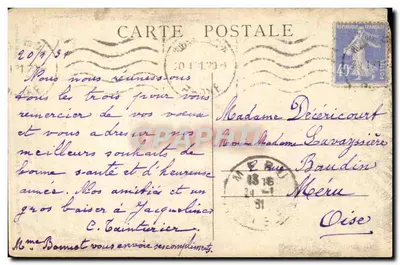 CARTE POSTALE
20/1/31
Nous nous reunissons
tous les trois pour vous
remercier de vos voeux
et vous adresser nos
meilleurs souhaits de
bonne santé et d'heureuse
année. Mes amitiés et un
gros baiser à Jacqueline
C. Tainturier
Mme Bonnot vous envoie ses compliments.
Madame Déciricourt
Madame Lavayssière
2 rue Baudin
Meru
Oise
MERU
24 - 1
31
40